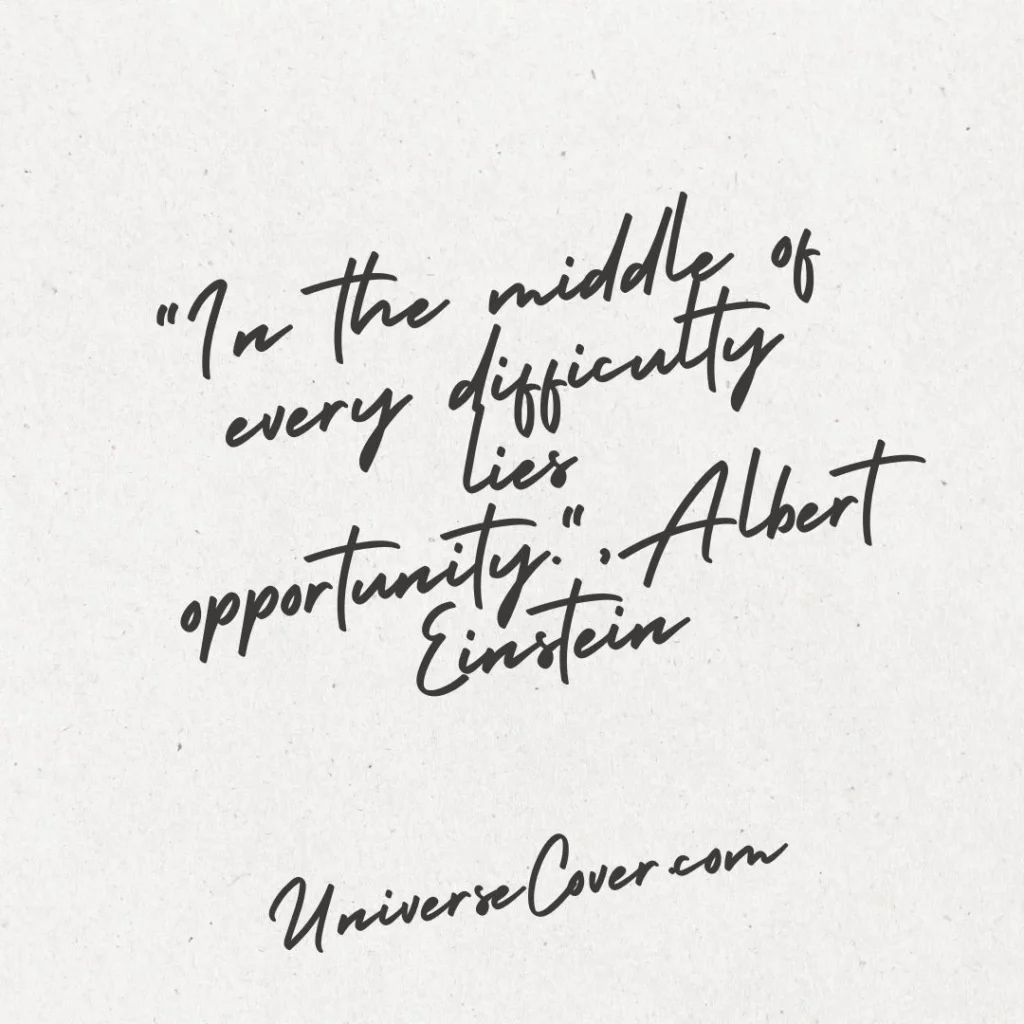 "In the middle of
every difficulty
lies
opportunity.", Albert
Einstein
UniverseCover.com